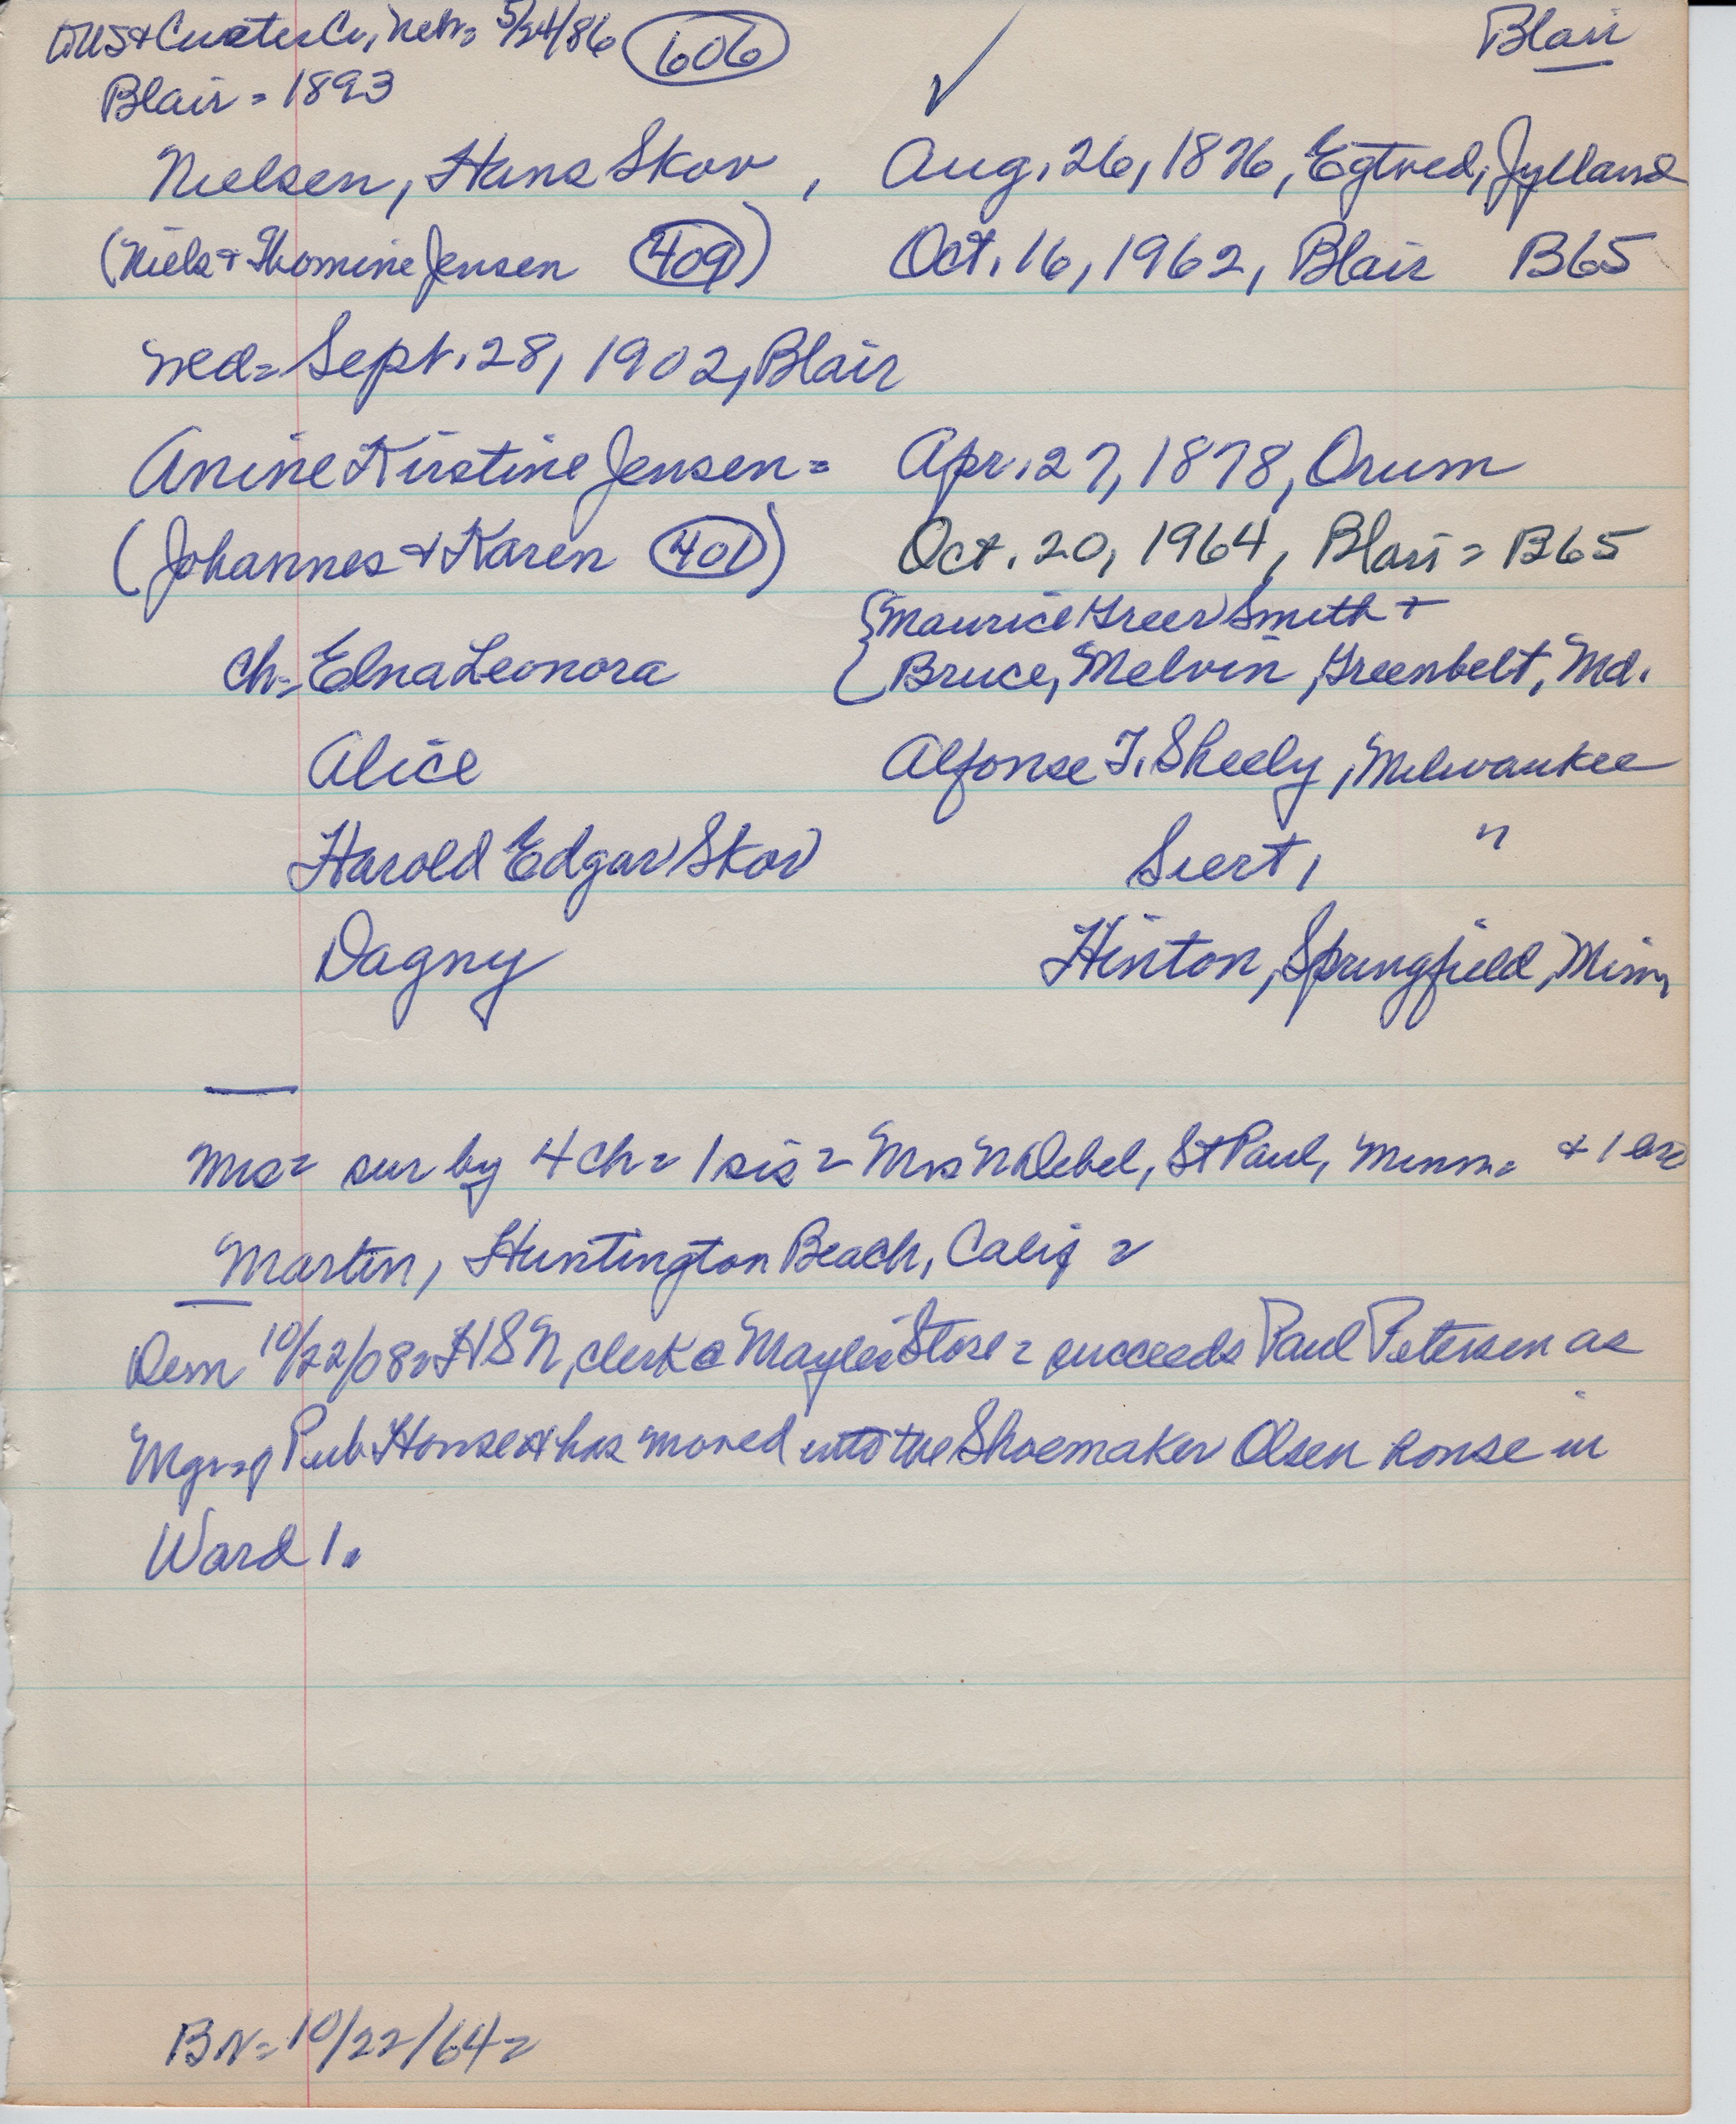 to US & Custer Co, Nebr = 5/24/86 606 ✓ Blair
Blair = 1893
Nielsen, Hans Skov , Aug. 26, 1876, Egtved, Jylland
(Niels + Thomine Jensen 409) Oct. 16, 1962, Blair B65
wed = Sept. 28, 1902, Blair
Anine Kirstine Jensen = Apr. 27, 1878, Orum
(Johannes + Karen 401) Oct. 20, 1964, Blair = B65
{Maurice Greer Smith +
ch = Edna Leonora Bruce, Melvin, Greenbelt, Md.
Alice Alfonse T. Sheely, Milwaukee
Harold Edgar Skov Siert, "
Dagny Hinton, Springfield, Minn
Mrs = sur by 4 ch = 1 sis = Mrs N Debel, St Paul, Minn = + 1 bro
Martin, Huntington Beach, Calif =
Dem 10/22/08 = HSN, clerk @ Store = succeeds Paul Petersen as
Mgr of Pub House & has moved into the Shoemaker Olsen house in
Ward 1.
BN = 10/22/64 =